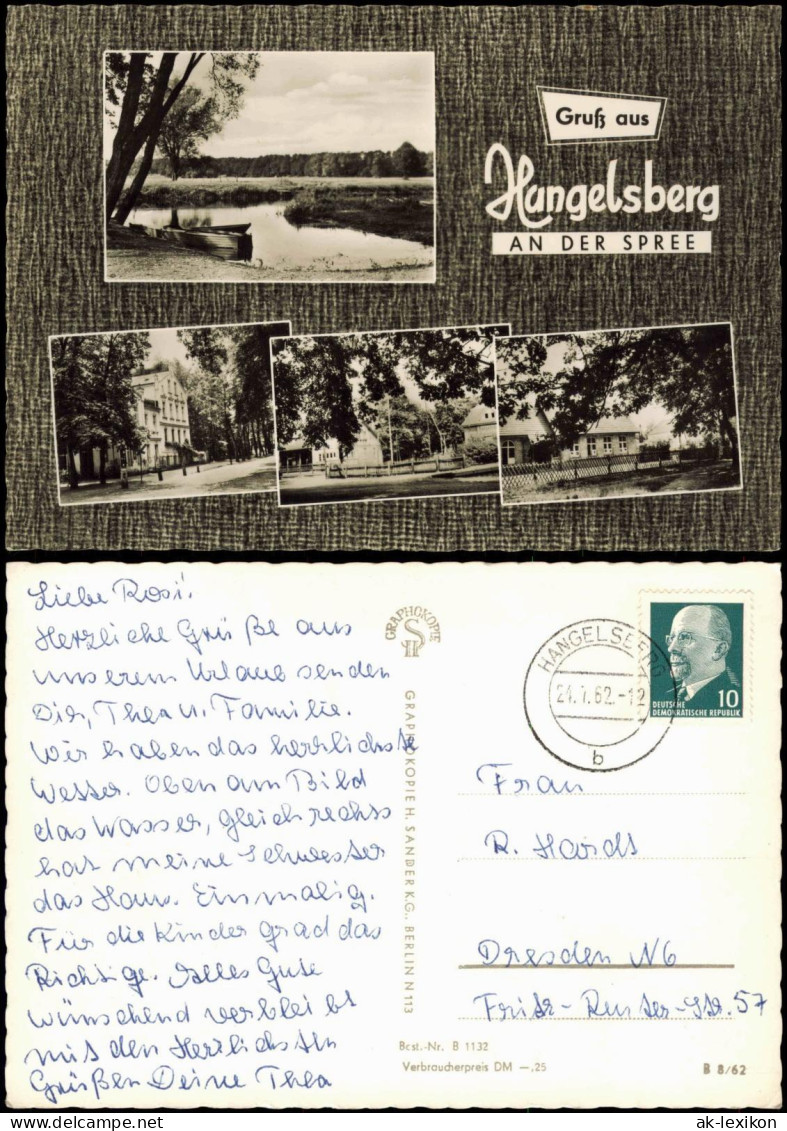 Gruß aus
Hangelsberg
AN DER SPREE
Liebe Rosi!
Herzliche Grüße aus
unserem Urlaub senden
Dir, Thea u. Familie.
Wir haben das herrlichste
Wetter. Oben am Bild
das Wasser, gleich rechts
hat meine Schwester
das Haus. Einmalig.
Für die Kinder grad das
Richtige. Alles Gute
wünschend verbleibt
mit den Herzlichsten
Grüßen Deine Thea
GRAPHOKOPIE
GRAPHOKOPIE H. SANDER K.G., BERLIN N 113
HANGELSBERG
24.7.62.-12
b
10
DEUTSCHE
DEMOKRATISCHE REPUBLIK
Frau
R.
Dresden N6
Fritz-Reuter-Str. 57
Bcst.-Nr. B 1132
Verbraucherpreis DM —,25
B 8/62
www.ansichtskartenversand.com
ak-lexikon